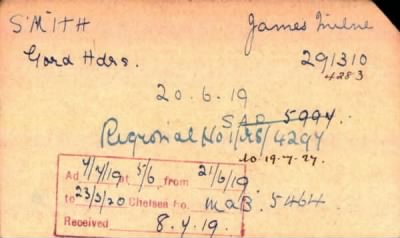 SMITH James Milne
Gord Hdrs. 291310
4283
20.6.19
S.A.P. 5994
Regional No 1/MS/4294
10.19.7.27.
Ad 4/7/19 at 5/6 from 21/6/19
to 23/3/20 Chelsea No. MaB. 5464
Received 8.4.19.